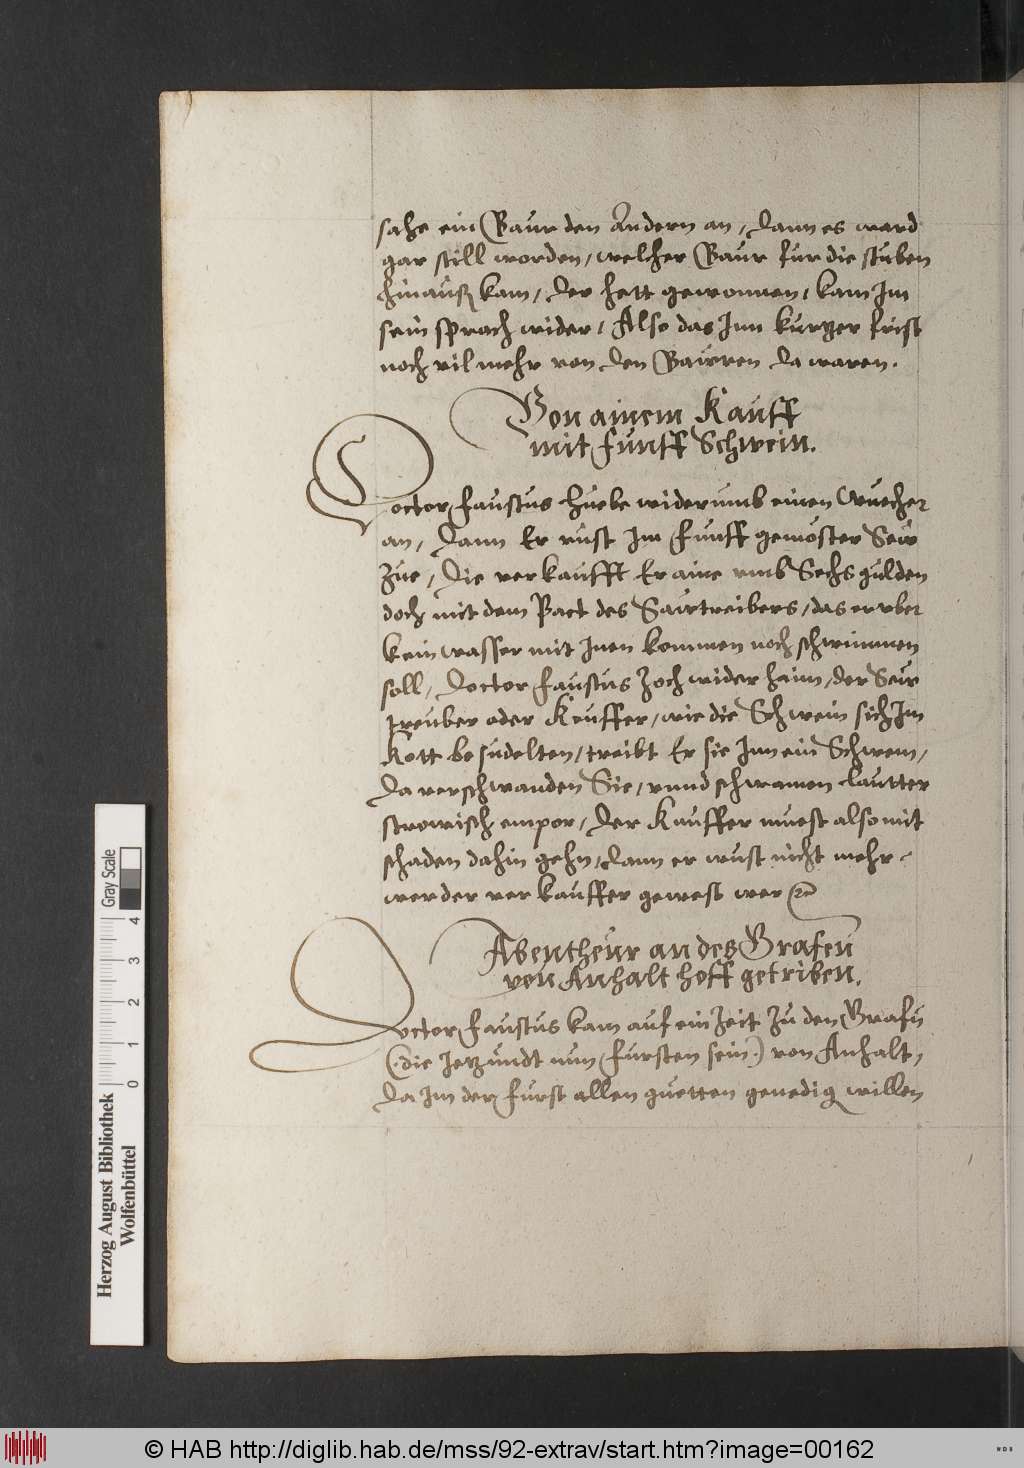 sahe ein Baur den Andern an, dann es ward
gar still worden, welcher Baur fur die stuben
hinauß kam, der hett gewonnen, kam Im
sein sprach wider, Also das Inn kurtzer frist
noch vil mehr von den Baurren da waren.
Von ainem Kauff
mit funff Schwein.
Doctor Faustus huebe widerumb einen Wuecher
an, dann Er rüst Im funff gemöster Seẅ
Zue, die verkaufft Er aine vmb Sechs gulden
doch mit dem Pact des Sawtreibers, das er vber
kein wasser mit Inen kommen noch schwimmen
soll, doctor Faustus Zoch wider haim, der Seẅ
treuber oder Keuffer, wie die Schwein sich Im
Kott besudelten, treibt Er sie Inn ein Schwem,
da verschwanden Sie, vnnd schwamen lautter
strowisch empor, der Kauffer muest also mit
schaden dahin gehn, dann er wust nicht mehr
wer der verkauffer gewest wer
Abentheür an des Grafen
von Anhalt hoff getriben.
Doctor Faustus kam auf ein Zeit Zu den Grafn
(die Jetzundt nun Fursten sein) von Anhalt,
da Im der furst allen guetten genedig willen
Herzog August Bibliothek
Wolfenbüttel
0 1 2 3 4
Gray Scale
© HAB http://diglib.hab.de/mss/92-extrav/start.htm?image=00162